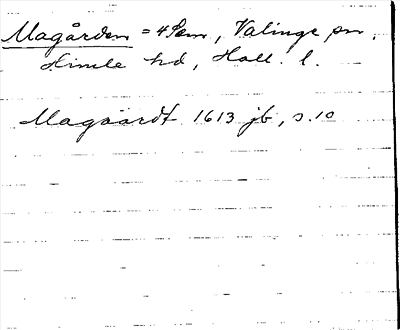 Magården = 4 Sem, Valinge sn,
Himle hd, Hall. l.
Magaardt 1613 jb, s. 10